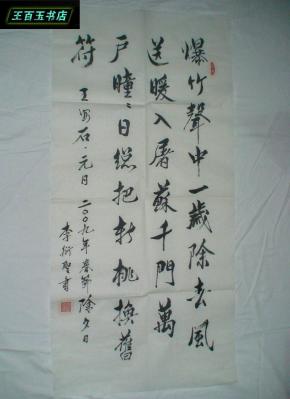 王百玉书店
爆竹聲中一歲除去風
送暖入屠蘇千門萬
戶曈〻日總把新桃換舊
符 王安石·元日 二〇〇九年春節除夕日
李衍聖書